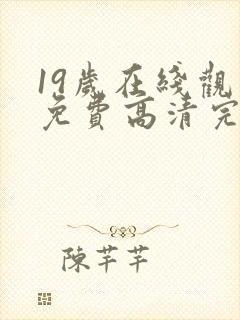 19歲在綫觀
免費高清完
陳芊芊